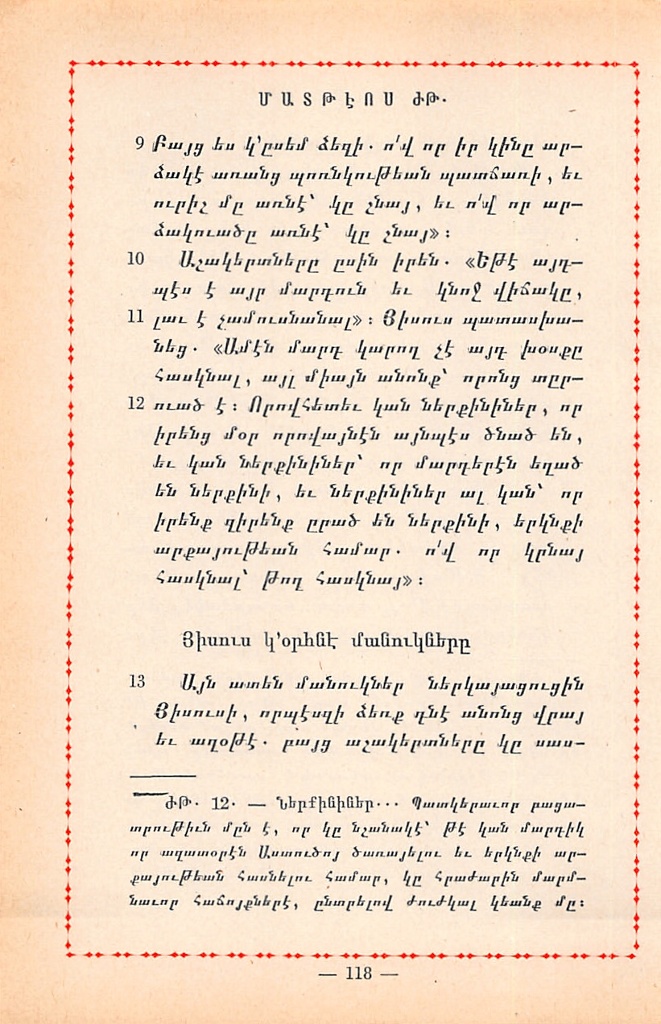 ՄԱՏԹԷՈՍ ԺԹ.
9 Բայց ես կ՚ըսեմ ձեզի. ո՛վ որ իր կինը ար–
ձակէ առանց պոռնկութեան պատճառի, եւ
ուրիշ մը առնէ՝ կը շնայ, եւ ո՛վ որ ար–
ձակուածը առնէ՝ կը շնայ»։
10 Աշակերտները ըսին իրեն. «Եթէ այդ–
պէս է այր մարդուն եւ կնոջ վիճակը,
11 լաւ է չամուսնանալ»։ Յիսուս պատասխա–
նեց. «Ամէն մարդ կարող չէ այդ խօսքը
հասկնալ, այլ միայն անոնք՝ որոնց տըր–
12 ուած է։ Որովհետեւ կան ներքինիներ, որ
իրենց մօր որովայնէն այնպէս ծնած են,
եւ կան ներքինիներ՝ որ մարդերէն եղած
են ներքինի, եւ ներքինիներ ալ կան՝ որ
իրենք զիրենք ըրած են ներքինի, երկնքի
արքայութեան համար. ո՛վ որ կրնայ
հասկնալ՝ թող հասկնայ»։
Յիսուս կ՚օրհնէ մանուկները
13 Այն ատեն մանուկներ ներկայացուցին
Յիսուսի, որպէսզի ձեռք դնէ անոնց վրայ
եւ աղօթէ. բայց աշակերտները կը սաս–
ԺԹ. 12. — Ներքինիներ... Պատկերաւոր բացա–
տրութիւն մըն է, որ կը նշանակէ՝ թէ կան մարդիկ
որ ազատօրէն Աստուծոյ ծառայելու եւ երկնքի ար–
քայութեան հասնելու համար, կը հրաժարին մարմ–
նաւոր հաճոյքներէ, ընտրելով ժուժկալ կեանք մը։
— 118 —